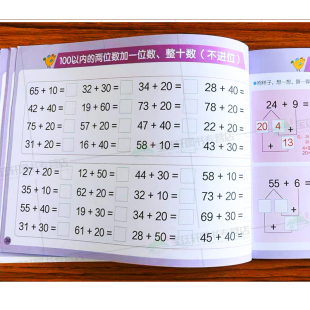 100以内的两位数加一位数、整十数（不进位）
65 + 10 = 32 + 30 = 34 + 20 = 28 + 40 =
42 + 40 = 19 + 60 = 73 + 20 = 78 + 20 =
75 + 20 = 57 + 20 = 47 + 50 = 22 + 20 =
31 + 20 = 16 + 40 = 58 + 10 = 43 + 30 =
27 + 20 = 12 + 50 = 44 + 30 = 58 + 10 =
35 + 10 = 62 + 20 = 32 + 10 = 73 + 20 =
55 + 40 = 19 + 30 = 34 + 20 = 69 + 30 =
31 + 30 = 61 + 20 = 28 + 50 = 45 + 40 =
24 + 9 =
20 4 +
+ 13
55 + 6 =
+
+